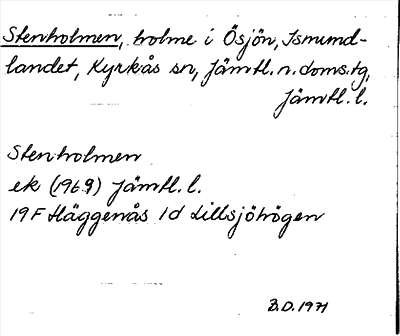 Stenholmen, holme i Ösjön, Ismund-
landet, Kyrkås sn, Jämtl. n. doms. tg,
Jämtl. l.
Stenholmen
ek (1969) Jämtl. l.
19F Häggenås 1d Lillsjöhögen
B.D. 1971